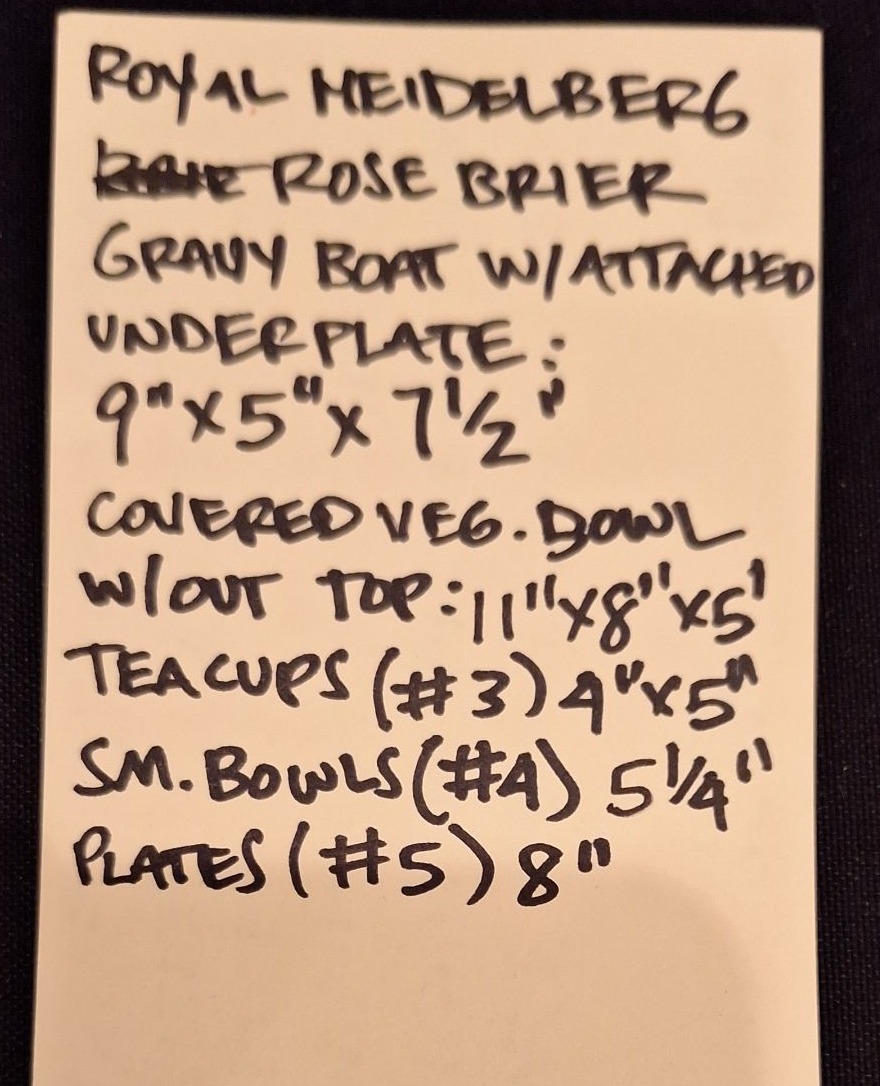 ROYAL HEIDELBERG
ROSE BRIER
GRAVY BOAT W/ATTACHED
UNDERPLATE:
9"X5"X 7 1/2"
COVERED VEG. BOWL
W/OUT TOP: 11"X8"X5'
TEACUPS (#3) 4"X5"
SM. BOWLS (#4) 5 1/4"
PLATES (#5) 8"